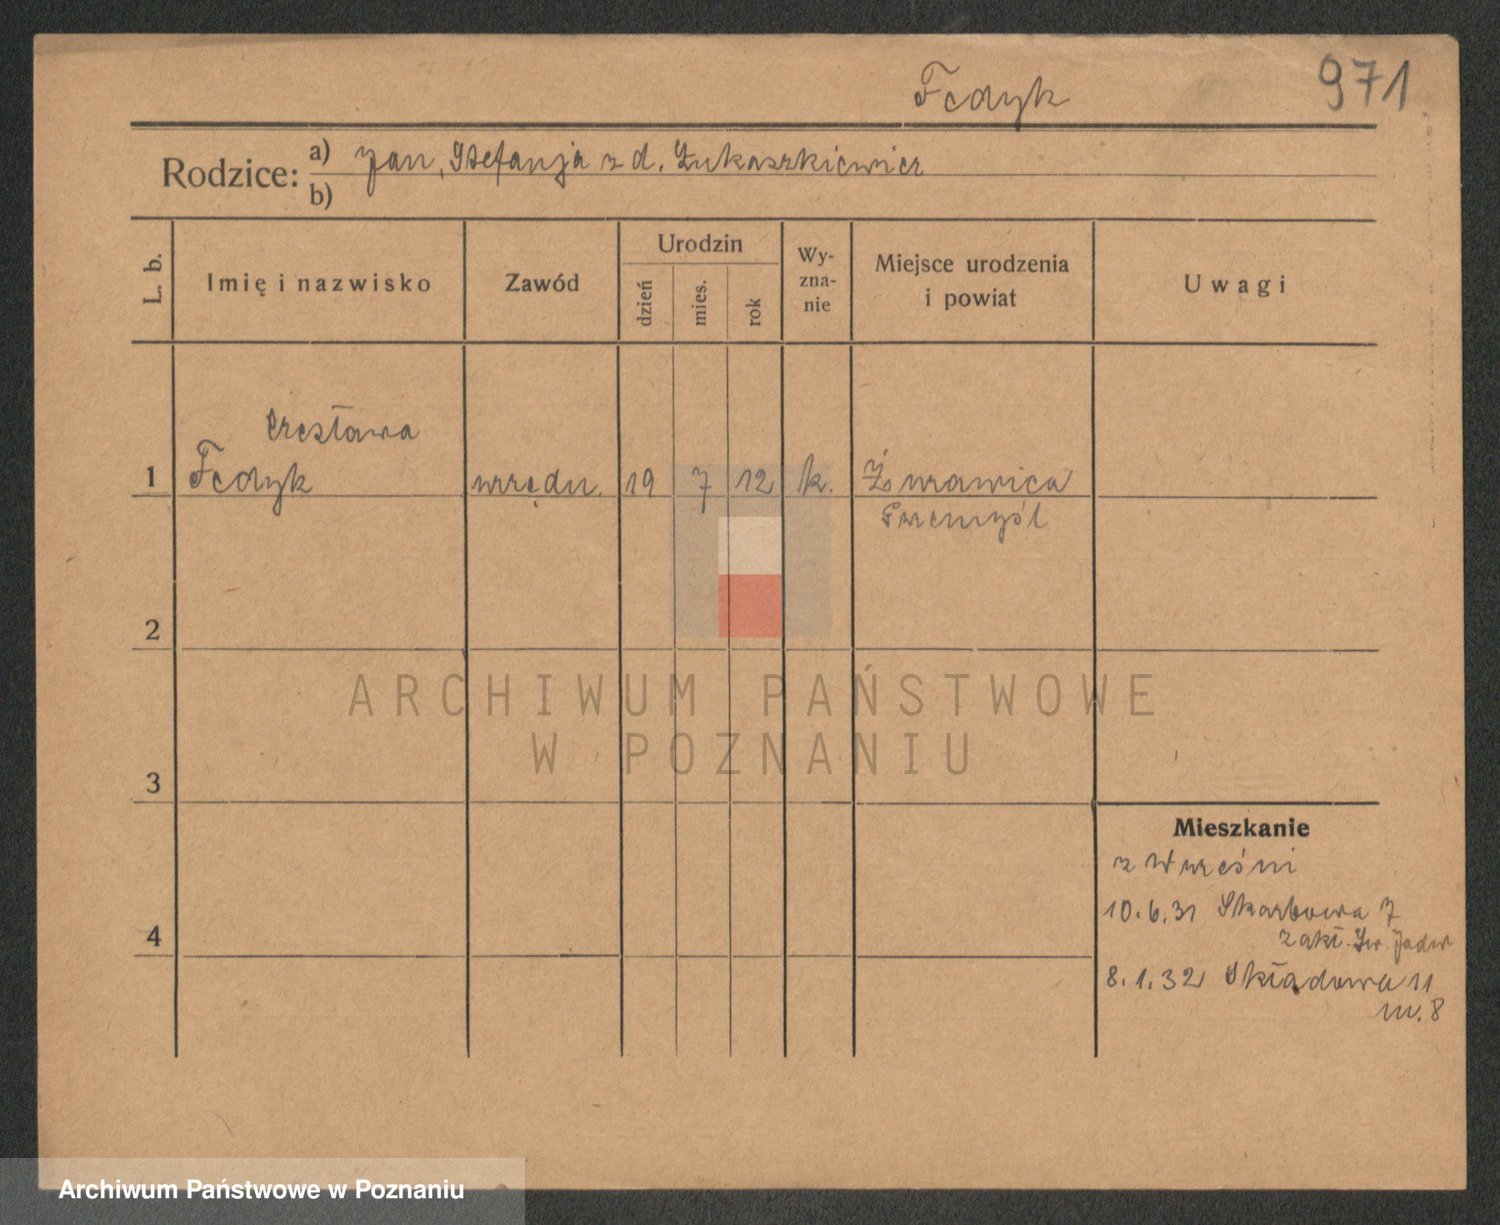 Fedyk 971
Rodzice: a) Jan, Stefanja z d. Łukaszkiewicz
b)
L. b. Imię i nazwisko Zawód Urodzin dzień mies. rok Wyznanie Miejsce urodzenia i powiat Uwagi
Czesława
1 Fedyk urzędn. 19 7 12 k. Żurawica
Przemyśl
2
ARCHIWUM PAŃSTWOWE
W POZNANIU
3
Mieszkanie
z Wrześni
10.6.31 Skarbowa 7
4 zakł. Św. Jadw
8.1.32 Składowa 11
m. 8
Archiwum Państwowe w Poznaniu